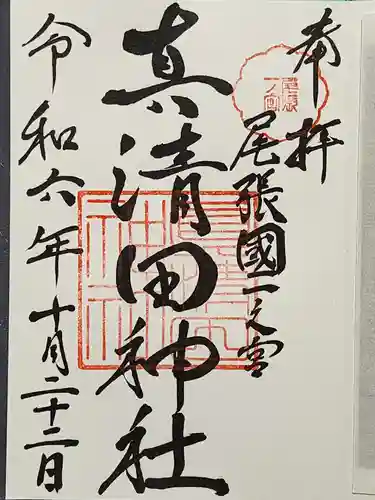 奉拝
尾張國一之宮
真清田神社
令和六年十月二十二日
尾張
一ノ宮